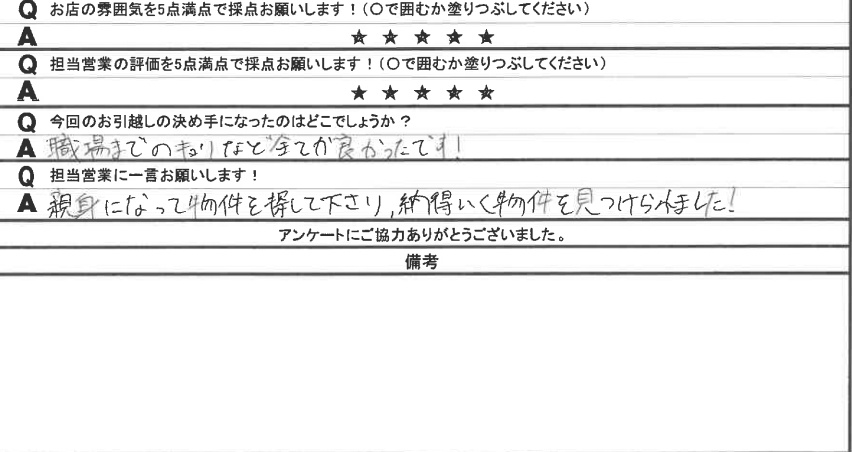 Q お店の雰囲気を5点満点で採点お願いします！(〇で囲むか塗りつぶしてください)
A ★ ★ ★ ★ ★
Q 担当営業の評価を5点満点で採点お願いします！(〇で囲むか塗りつぶしてください)
A ★ ★ ★ ★ ★
Q 今回のお引越しの決め手になったのはどこでしょうか？
A 職場までのキョリなど全てが良かったです!
Q 担当営業に一言お願いします！
A 親身になって物件を探して下さり,納得いく物件を見つけられました!
アンケートにご協力ありがとうございました。
備考